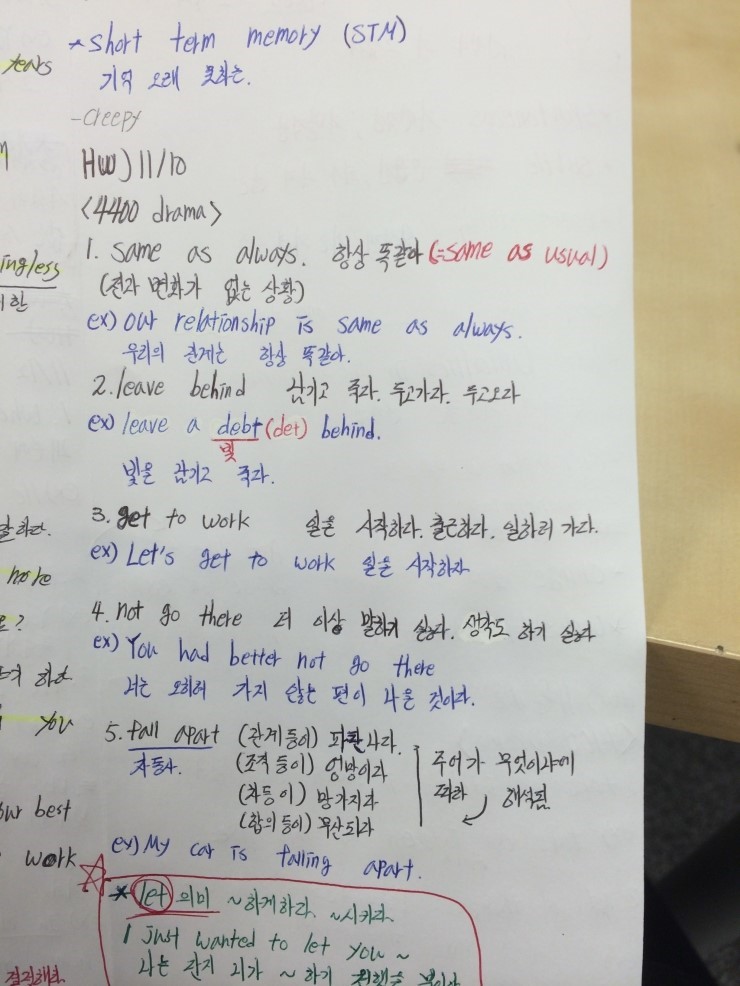 tears
ingless
more
you
our best
work
*short term memory (STM)
기억 오래 못하는.
-creepy
HW) 11/10
<4400 drama>
1. same as always. 항상 똑같아 (=same as usual)
(전과 변화가 없는 상황)
ex) our relationship is same as always.
우리의 관계는 항상 똑같아.
2. leave behind 남기고 죽다. 두고가다. 두고오다
ex) leave a debt (det) behind.
빚
빚을 남기고 죽다.
3. get to work 일을 시작하다. 출근하다. 일하러 가다.
ex) Let's get to work 일을 시작하자
4. not go there 더 이상 말하기 싫다. 생각도 하기 싫다
ex) You had better not go there
너는 오히려 가지 않는 편이 나을 것이다.
5. fall apart (관계 등이) 파탄나다.
자동사. (조직 등이) 엉망이다
(차등이) 망가지다
(합의 등이) 무산되다
주어가 무엇이냐에
따라 해석됨
ex) My car is falling apart.
* let 의미 ~하게하다. ~시키다.
I just wanted to let you ~
나는 단지 니가 ~ 하기